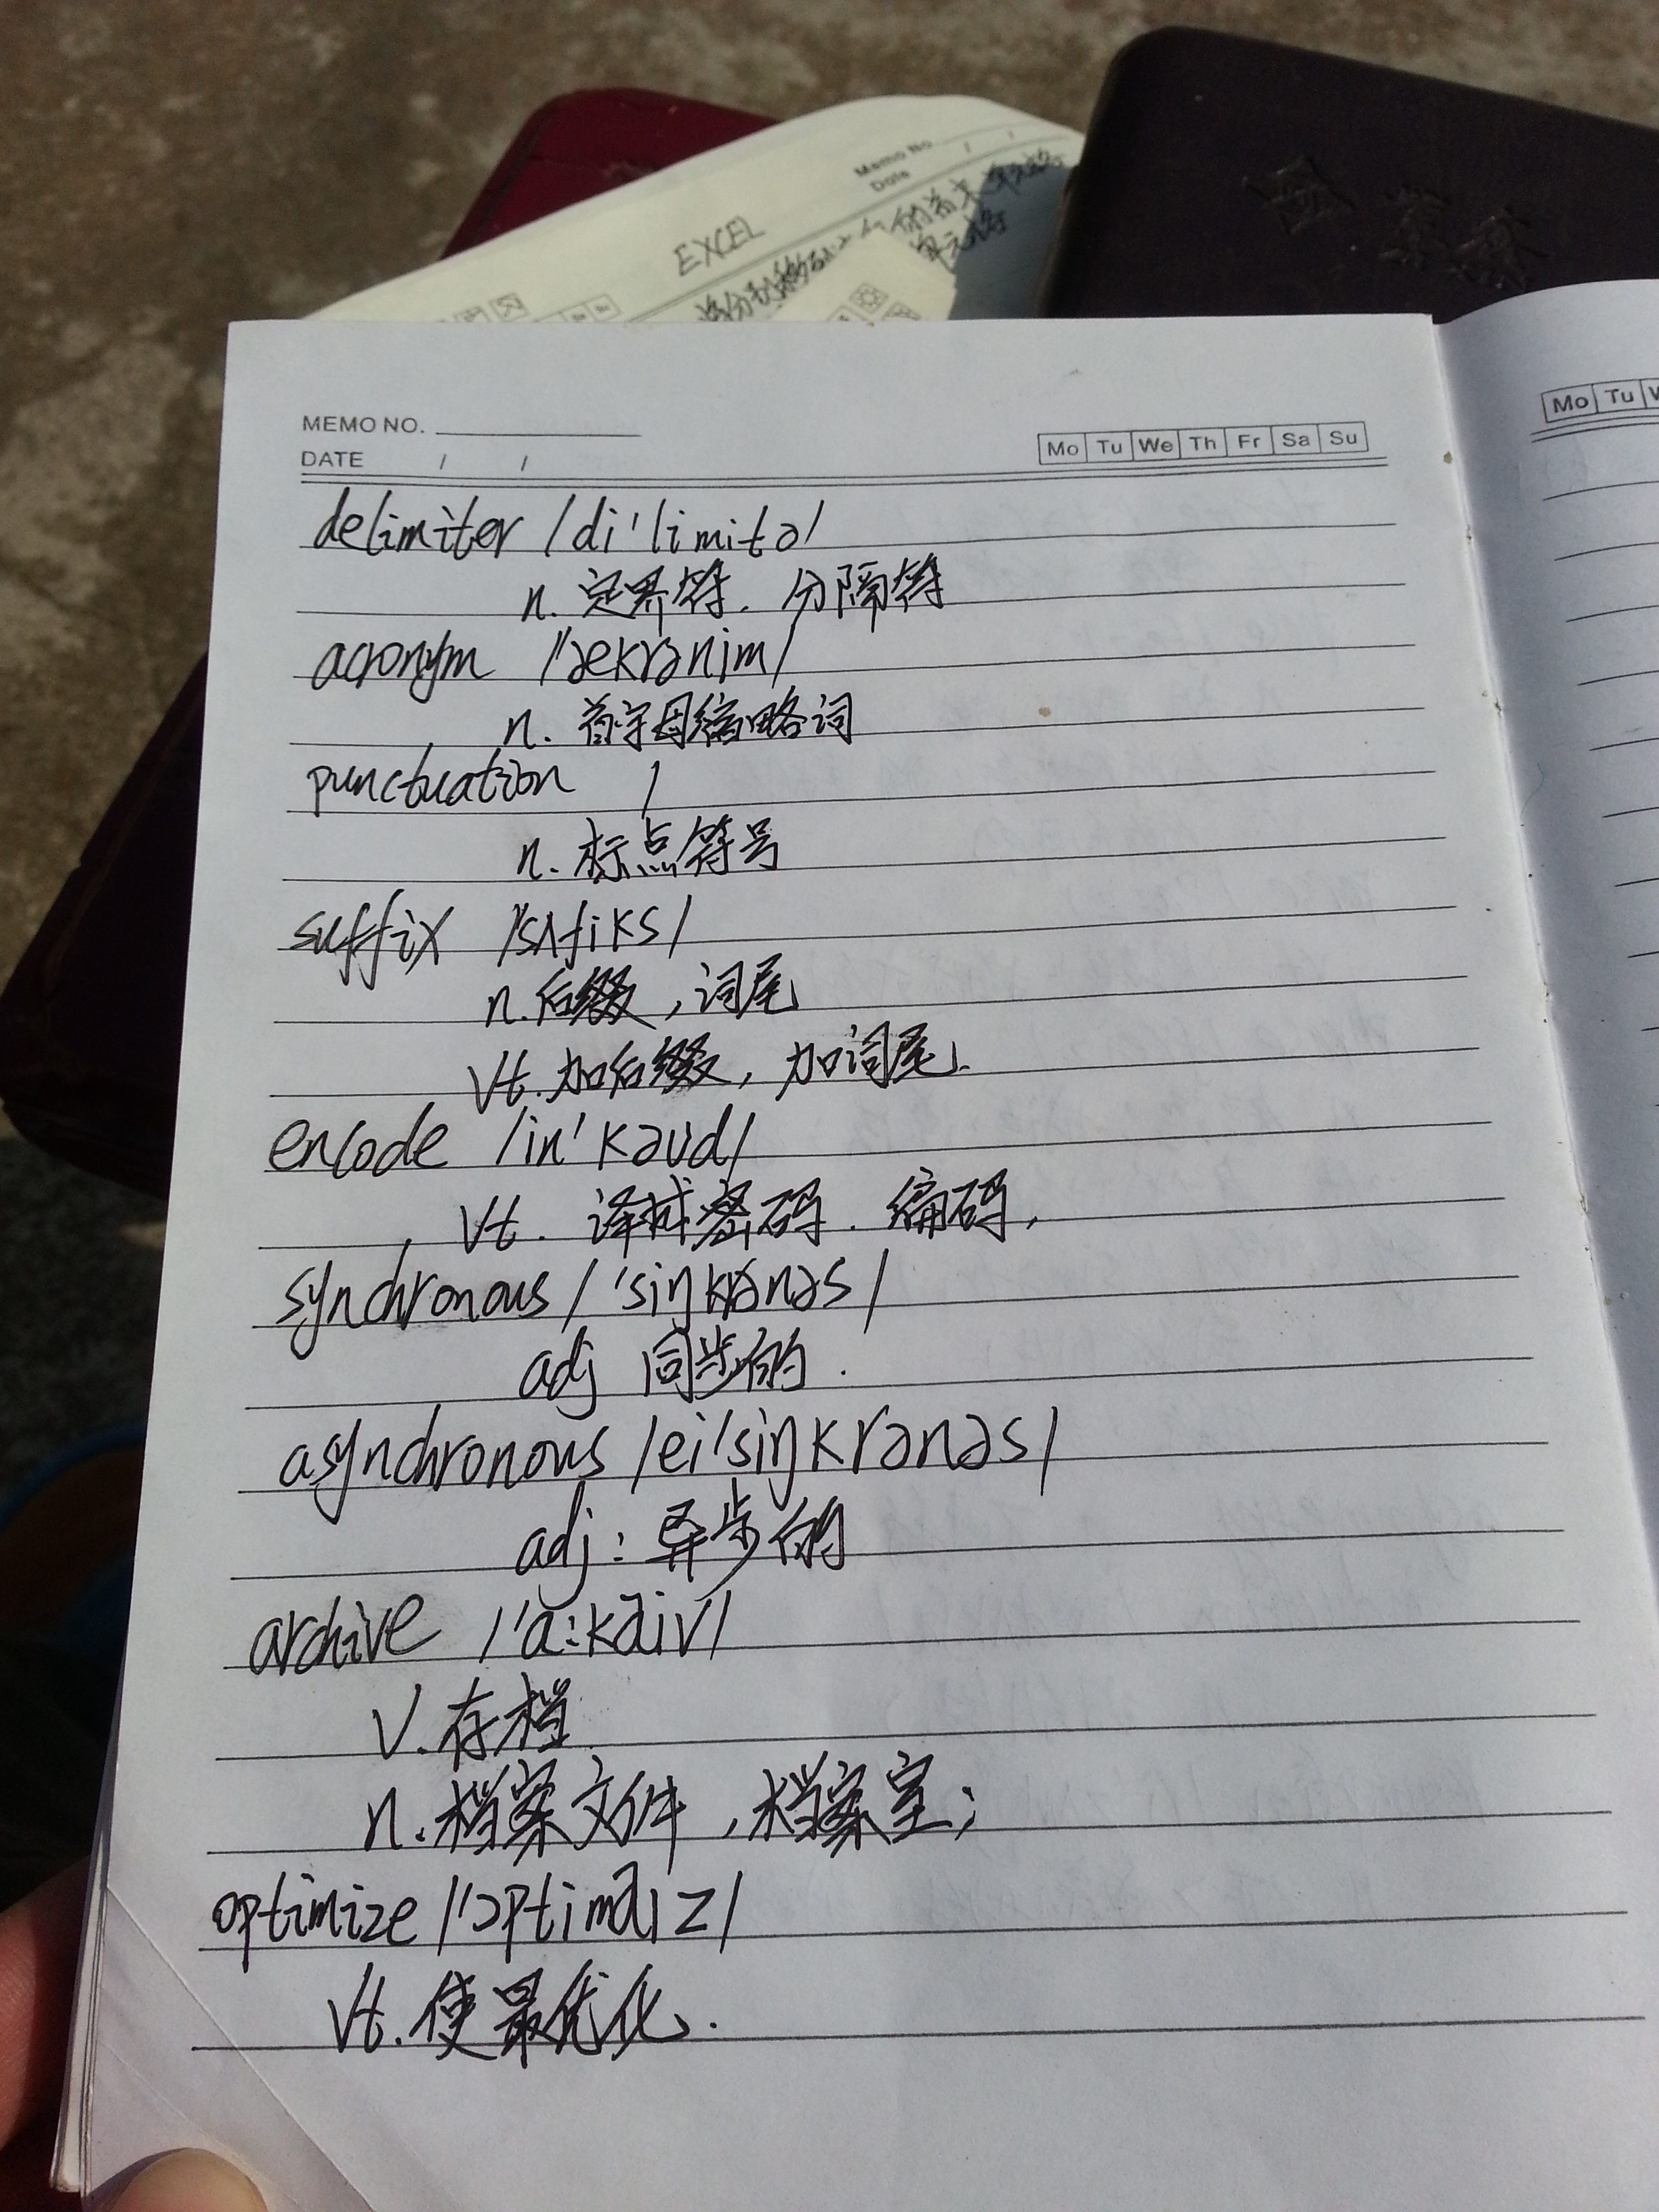 Memo No
Date / /
EXCEL
MEMO NO.
DATE / /
Mo Tu We Th Fr Sa Su
Mo Tu
delimiter /di'limitə/
n. 定界符. 分隔符
acronym /'ækrənim/
n. 首字母缩略词
punctuation /
n. 标点符号
suffix /'sʌfiks/
n. 后缀, 词尾
Vt. 加后缀, 加词尾.
encode /in'kəud/
Vt. 译成密码. 编码,
synchronous /'siŋkrənəs/
adj 同步的.
asynchronous /ei'siŋkrənəs/
adj: 异步的
archive /'a:kaiv/
V. 存档
n. 档案文件, 档案室;
optimize /'ɔptimaiz/
Vt. 使最优化.